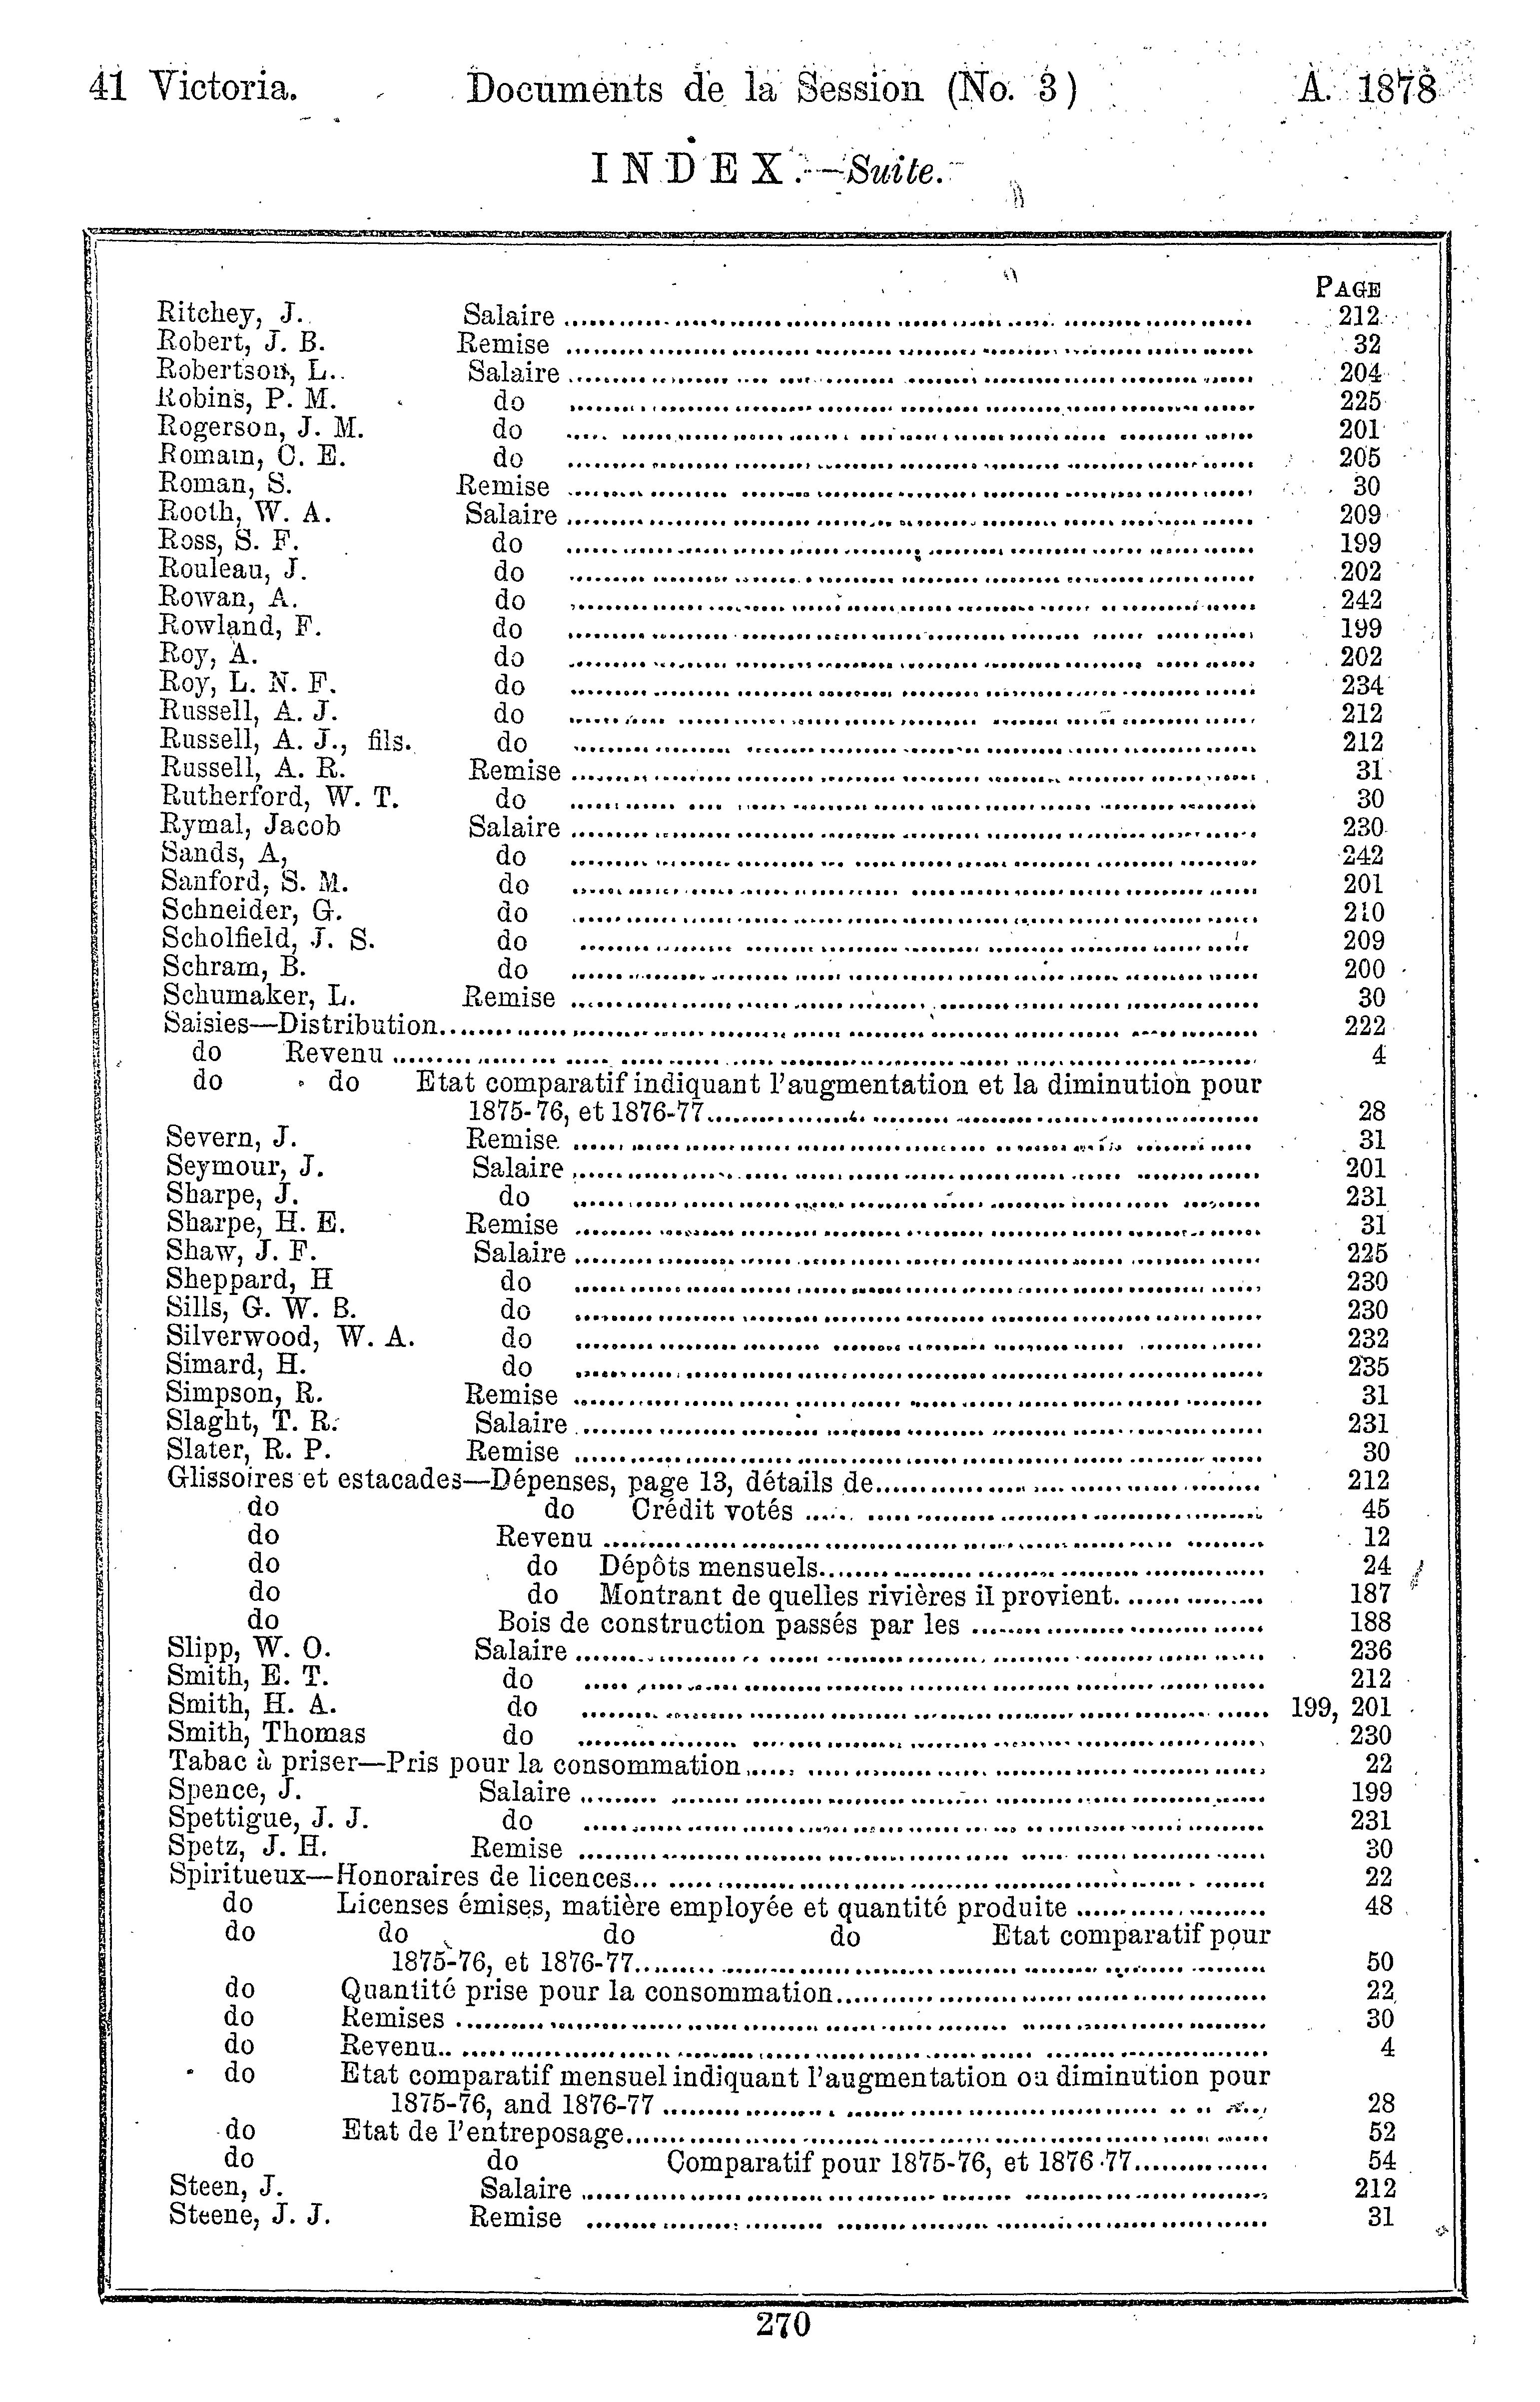 41 Victoria. Documents de la Session (No. 3) A. 1878
INDEX.—Suite.
PAGE
Ritchey, J. Salaire 212
Robert, J. B. Remise 32
Robertson, L. Salaire 204
Robins, P. M. do 225
Rogerson, J. M. do 201
Romain, C. E. do 205
Roman, S. Remise 30
Rooth, W. A. Salaire 209
Ross, S. F. do 199
Rouleau, J. do 202
Rowan, A. do 242
Rowland, F. do 199
Roy, A. do 202
Roy, L. N. F. do 234
Russell, A. J. do 212
Russell, A. J., fils. do 212
Russell, A. R. Remise 31
Rutherford, W. T. do 30
Rymal, Jacob Salaire 230
Sands, A, do 242
Sanford, S. M. do 201
Schneider, G. do 210
Scholfield, J. S. do 209
Schram, B. do 200
Schumaker, L. Remise 30
Saisies—Distribution 222
do Revenu 4
do do Etat comparatif indiquant l'augmentation et la diminution pour
1875-76, et 1876-77 28
Severn, J. Remise 31
Seymour, J. Salaire 201
Sharpe, J. do 231
Sharpe, H. E. Remise 31
Shaw, J. F. Salaire 225
Sheppard, H do 230
Sills, G. W. B. do 230
Silverwood, W. A. do 232
Simard, H. do 235
Simpson, R. Remise 31
Slaght, T. R. Salaire 231
Slater, R. P. Remise 30
Glissoires et estacades—Dépenses, page 13, détails de 212
do do Crédit votés 45
do Revenu 12
do do Dépôts mensuels 24
do do Montrant de quelles rivières il provient. 187
do Bois de construction passés par les 188
Slipp, W. O. Salaire 236
Smith, E. T. do 212
Smith, H. A. do 199, 201
Smith, Thomas do 230
Tabac à priser—Pris pour la consommation 22
Spence, J. Salaire 199
Spettigue, J. J. do 231
Spetz, J. H. Remise 30
Spiritueux—Honoraires de licences 22
do Licenses émises, matière employée et quantité produite 48
do do do do Etat comparatif pour
1875-76, et 1876-77 50
do Quantité prise pour la consommation 22
do Remises 30
do Revenu 4
do Etat comparatif mensuel indiquant l'augmentation ou diminution pour
1875-76, and 1876-77 28
do Etat de l'entreposage 52
do do Comparatif pour 1875-76, et 1876-77 54
Steen, J. Salaire 212
Steene, J. J. Remise 31
270